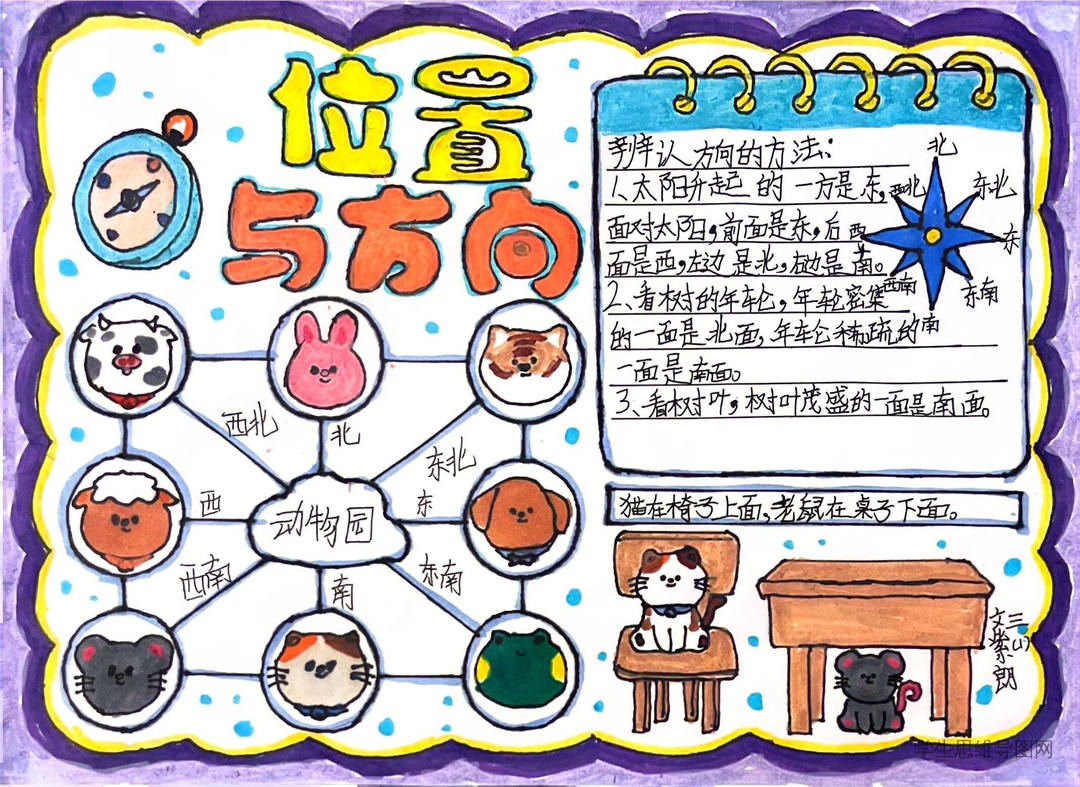 位置
与方向
辨认方向的方法：
1、太阳升起的一方是东，
面对太阳，前面是东，后
面是西，左边是北，右边是南。
2、看树的年轮，年轮密集
的一面是北面，年轮稀疏的
一面是南面。
3、看树叶，树叶茂盛的一面是南面。
北
西北
东北
西
东
西南
东南
南
西北
北
东北
西
动物园
东
西南
南
东南
猫在椅子上面，老鼠在桌子下面。
三(1)
文紫朗
学生思维导图网